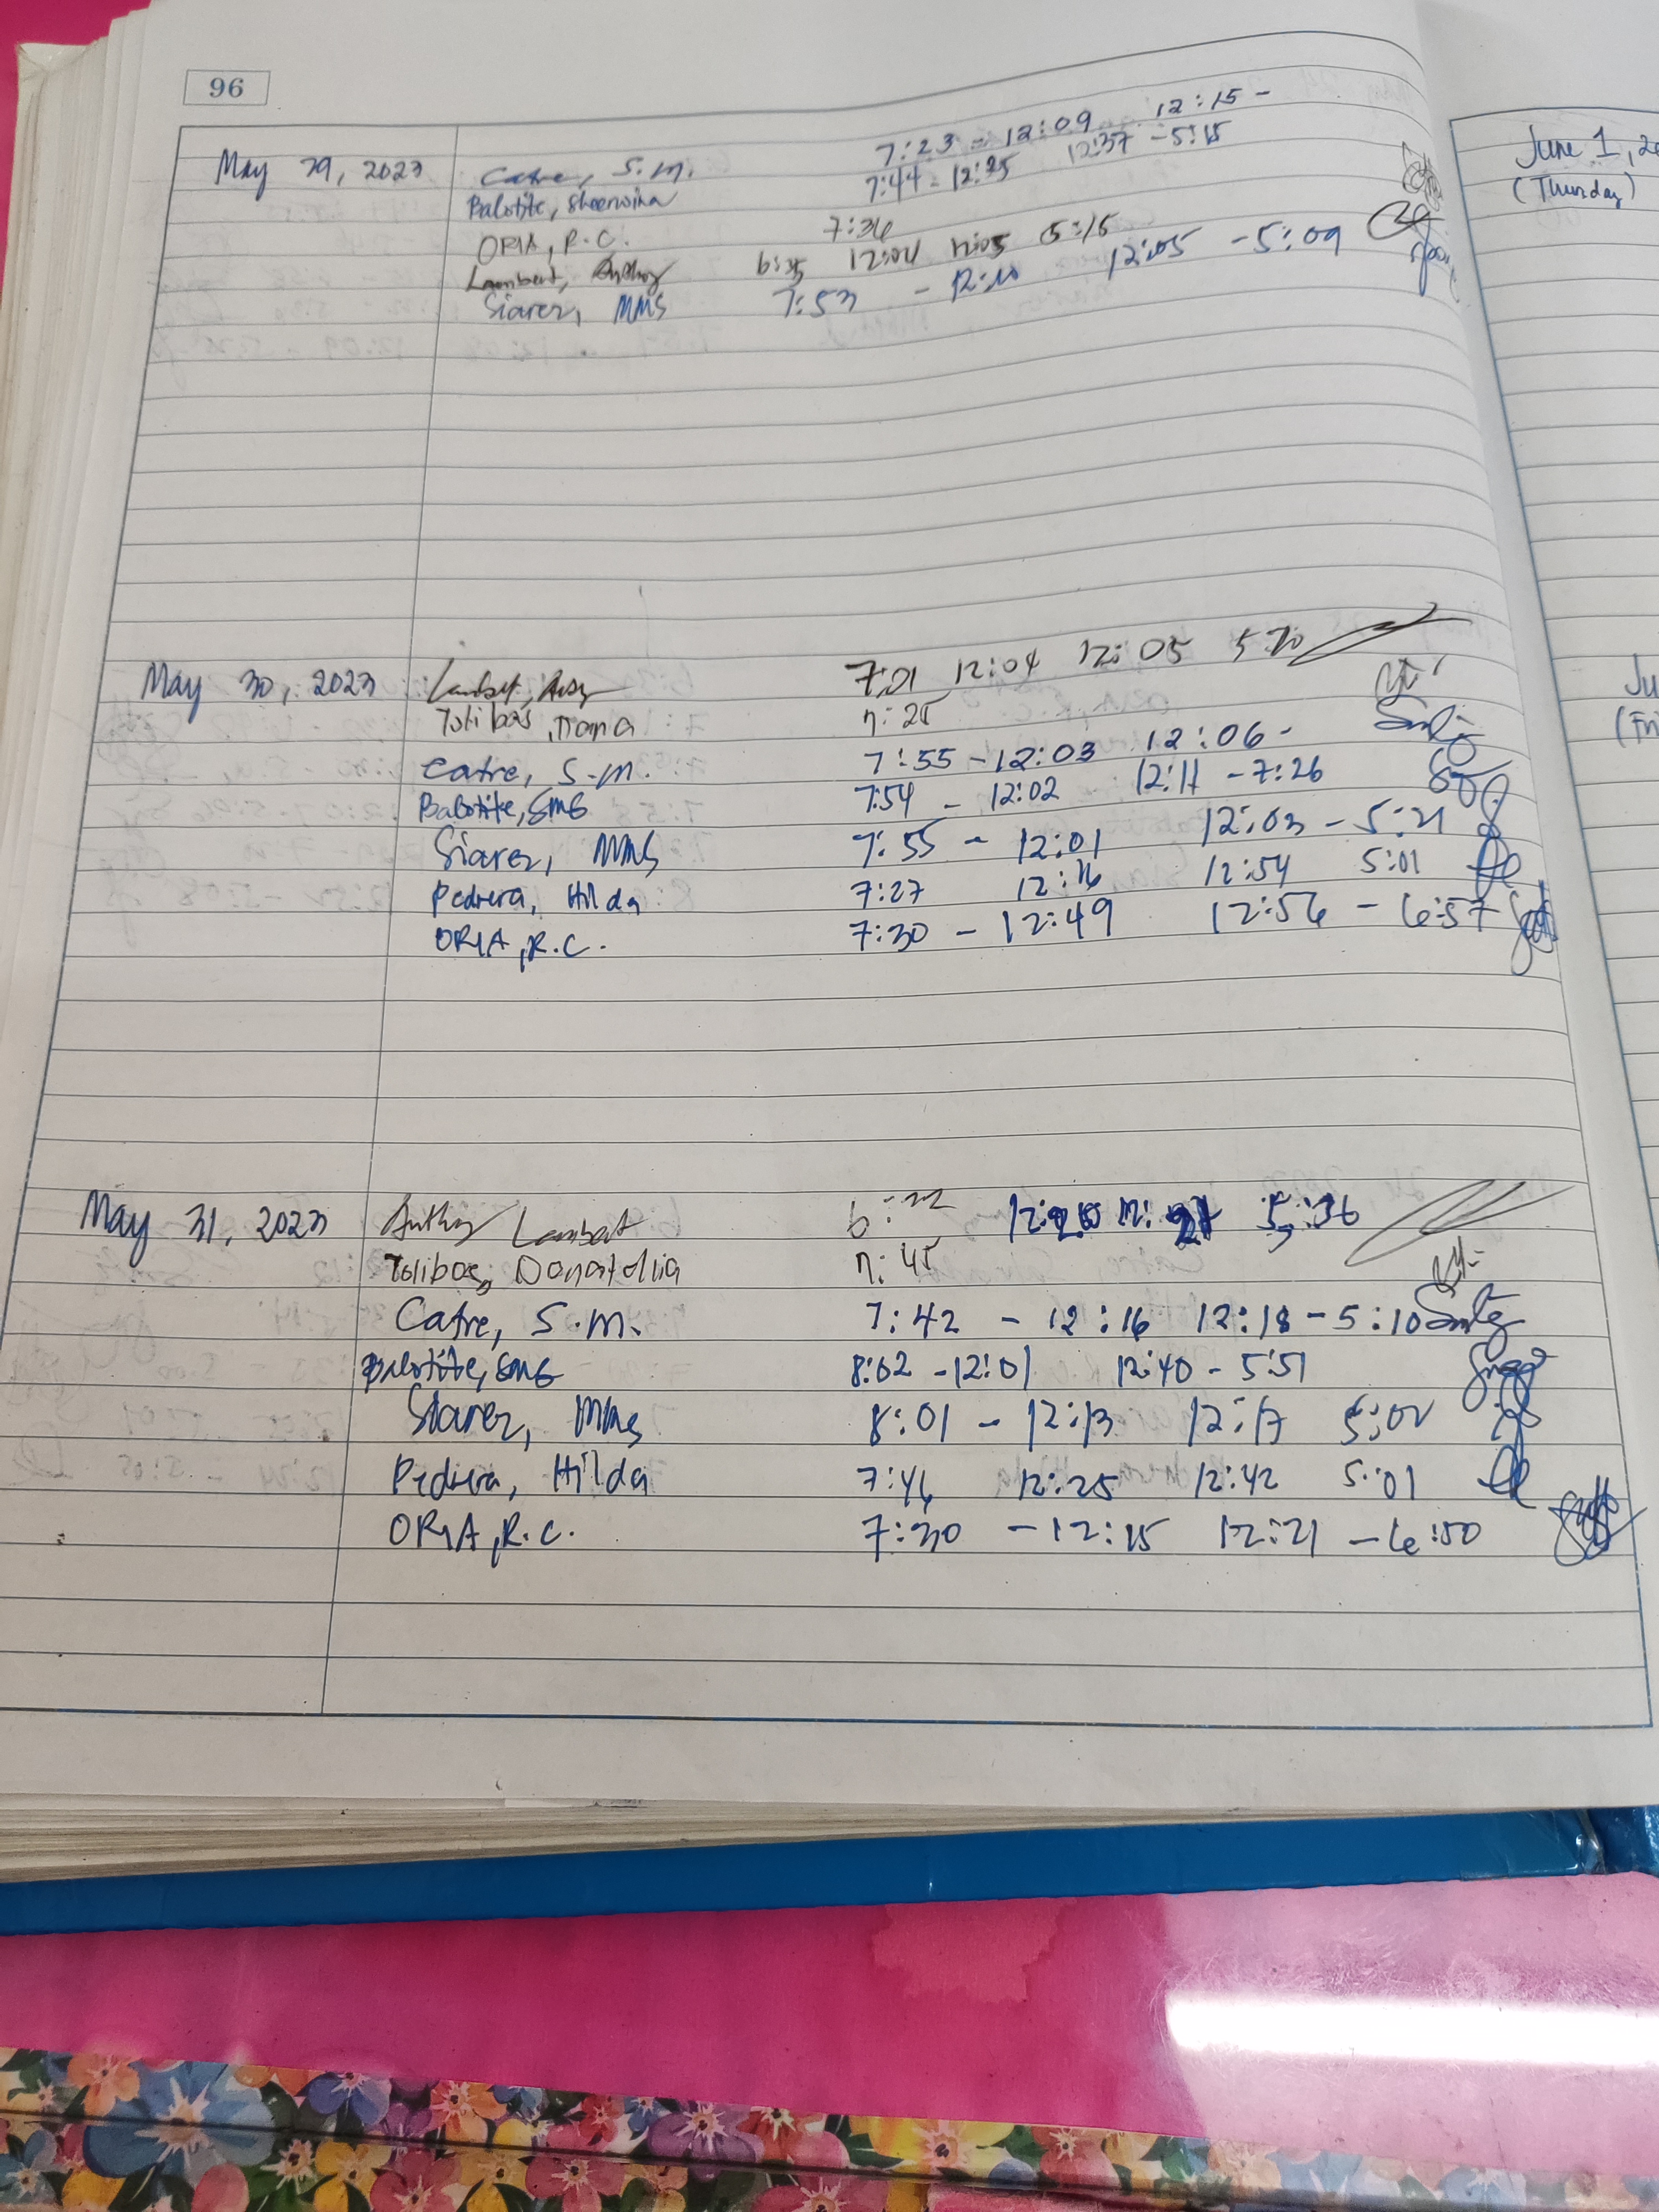 96
May 29, 2023 Catre, S.M. 7:23 - 12:09 12:15 -
Balotite, Sheerwina 7:44 - 12:35 12:37 - 5:15
ORIA, R.C. 7:36
Lambert, Anthony 6:35 12:04 12:05 5:15
Siarez, MMS 7:53 - 12:10 12:05 - 5:09
May 30, 2023 Lambert, 7:01 12:04 12:05 5:20
Tolibas, Dona 7:25
Catre, S.M. 7:55 - 12:03 12:06 -
Balotite, SMG 7:54 - 12:02 12:11 - 7:26
Siarez, MMS 7:55 - 12:01 12:03 - 5:21
Pedrera, Hilda 7:27 12:16 12:54 5:01
ORIA, R.C. 7:30 - 12:49 12:56 - 6:57
May 31, 2023 Anthony Lambert 6:22 12:20 12:21 5:36
Tolibas, Donatella 7:45
Catre, S.M. 7:42 - 12:16 12:18 - 5:10
Balotite, SMG 8:02 - 12:01 12:40 - 5:51
Siarez, MMS 8:01 - 12:13 12:17 5:02
Pedrera, Hilda 7:46 12:25 12:42 5:01
ORIA, R.C. 7:30 - 12:15 12:21 - 6:50
June 1, 20
(Thursday)
Ju
(Fri